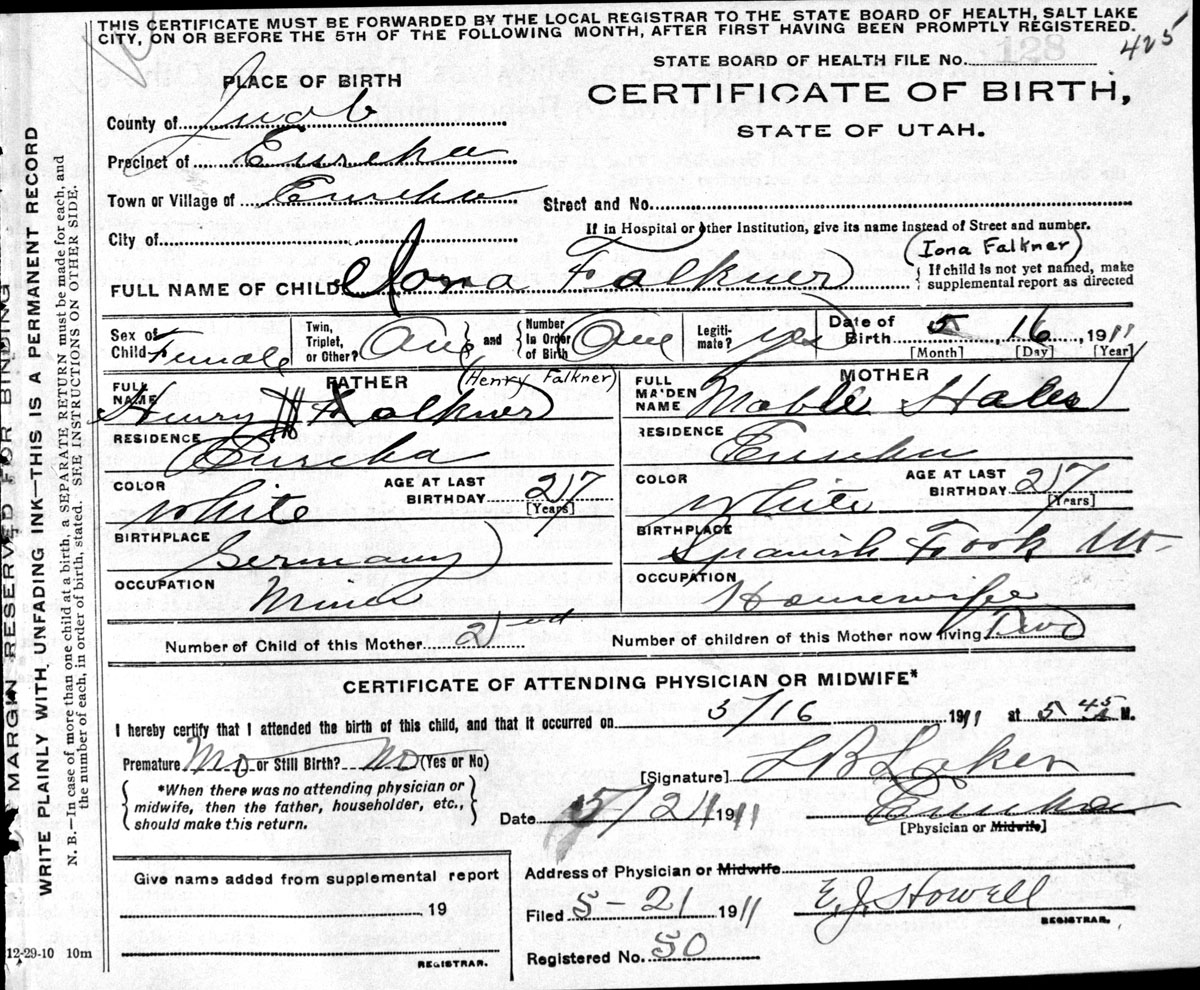 THIS CERTIFICATE MUST BE FORWARDED BY THE LOCAL REGISTRAR TO THE STATE BOARD OF HEALTH, SALT LAKE
CITY, ON OR BEFORE THE 5TH OF THE FOLLOWING MONTH, AFTER FIRST HAVING BEEN PROMPTLY REGISTERED.
425
STATE BOARD OF HEALTH FILE No. 128
PLACE OF BIRTH
CERTIFICATE OF BIRTH,
STATE OF UTAH.
County of Juab
Precinct of Eureka
Town or Village of Eureka
Street and No.
If in Hospital or other Institution, give its name Instead of Street and number.
City of
(Iona Falkner)
FULL NAME OF CHILD Iona Falkner
{ If child is not yet named, make
supplemental report as directed
Sex of Child Female
Twin, Triplet, or Other? One
and
Number In Order of Birth One
Legiti-mate? yes
Date of Birth 5 16, 1911
[Month] [Day] [Year]
FATHER
(Henry Falkner)
FULL NAME Henry Falkner
MOTHER
FULL MAIDEN NAME Mable Hales
RESIDENCE Eureka
RESIDENCE Eureka
COLOR White
AGE AT LAST BIRTHDAY 27
[Years]
COLOR White
AGE AT LAST BIRTHDAY 27
[Years]
BIRTHPLACE Germany
BIRTHPLACE Spanish Fork Ut.
OCCUPATION Miner
OCCUPATION Housewife
Number of Child of this Mother 2nd
Number of children of this Mother now living Two
CERTIFICATE OF ATTENDING PHYSICIAN OR MIDWIFE*
I hereby certify that I attended the birth of this child, and that it occurred on 5/16 1911 at 5 45 A M.
Premature No or Still Birth? No (Yes or No)
*When there was no attending physician or
midwife, then the father, householder, etc.,
should make this return.
[Signature]
Date 5/21 1911
Eureka
[Physician or Midwife]
Address of Physician or Midwife
Give name added from supplemental report
, 19
REGISTRAR.
Filed 5-21 1911
E.J. Howell
REGISTRAR.
Registered No. 50
12-29-10 10m
MARGIN RESERVED FOR BINDING
WRITE PLAINLY WITH UNFADING INK—THIS IS A PERMANENT RECORD
N. B.—In case of more than one child at a birth, a SEPARATE RETURN must be made for each, and
the number of each, in order of birth, stated. SEE INSTRUCTIONS ON OTHER SIDE.